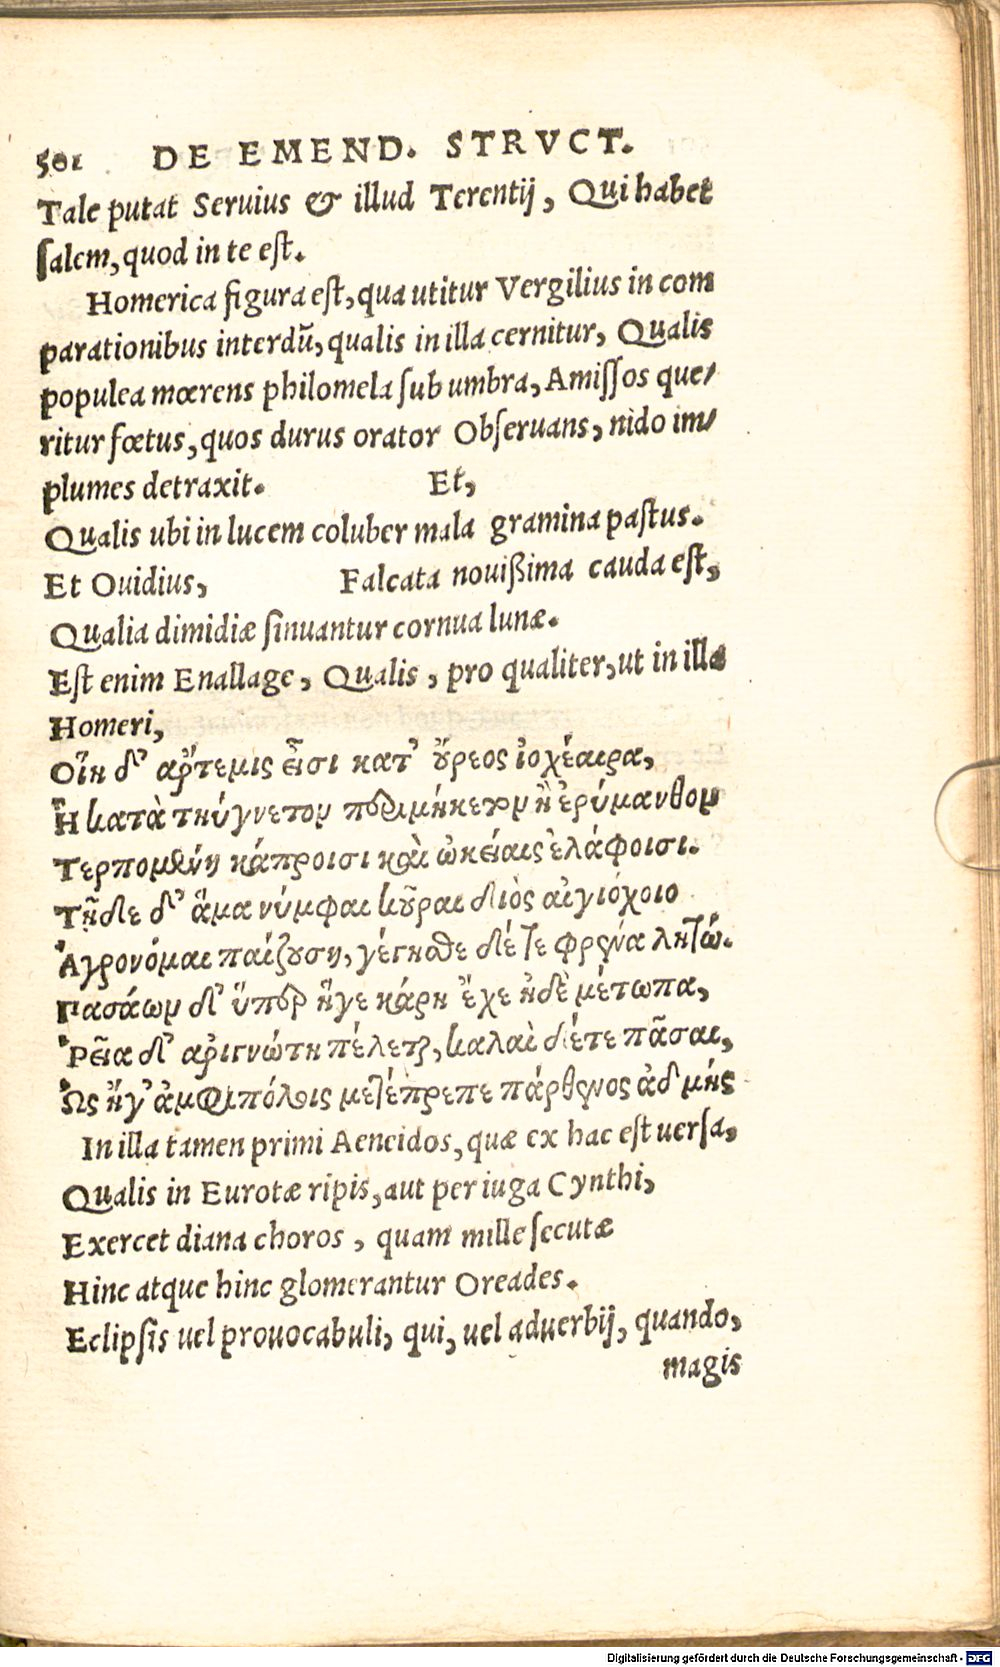 501 DE EMEND. STRVCT.
Tale putat Seruius & illud Terentij, Qui habet
ſalem, quod in te eſt.
Homerica figura eſt, qua utitur Vergilius in com
parationibus interdũ, qualis in illa cernitur, Qualis
populea mœrens philomela ſub umbra, Amiſſos que/
ritur fœtus, quos durus orator Obſeruans, nido im/
plumes detraxit. Et,
Qualis ubi in lucem coluber mala gramina paſtus.
Et Ouidius, Falcata nouißima cauda eſt,
Qualia dimidiæ ſinuantur cornua lunæ.
Eſt enim Enallage, Qualis, pro qualiter, ut in illa
Homeri,
Οἵη δ' αῤτεμις εἶσι κατ' ὔρεος ἰοχέαιρα,
Ἢ κατὰ τηΰγνετον περιμήκετον ἢ ἐρύμανθον
Τερπομένη κάπροισι καὶ ὠκείαις ἐλάφοισι.
Τῆδε δ' ἅμα νύμφαι κοῦραι διὸς αἰγιόχοιο
Ἀγρονόμαι παίζουση, γέγηθε δέ τε φρένα λητώ.
Πασάων δ' ὕπερ ἥγε κάρη ἔχε ἠδὲ μέτωπα,
Ῥεῖα δ' αῤιγνώτη πέλεται, καλαὶ δέτε πᾶσαι,
Ὣς ἥγ' ἀμφιπόλοις μετέπρεπε πάρθενος ἀδμής
In illa tamen primi Aeneidos, quæ ex hac eſt uerſa,
Qualis in Eurotæ ripis, aut per iuga Cynthi,
Exercet diana choros, quam mille ſecutæ
Hinc atque hinc glomerantur Oreades.
Eclipſis uel prouocabuli, qui, uel aduerbij, quando,
magis
Digitalisierung gefördert durch die Deutsche Forschungsgemeinschaft - DFG